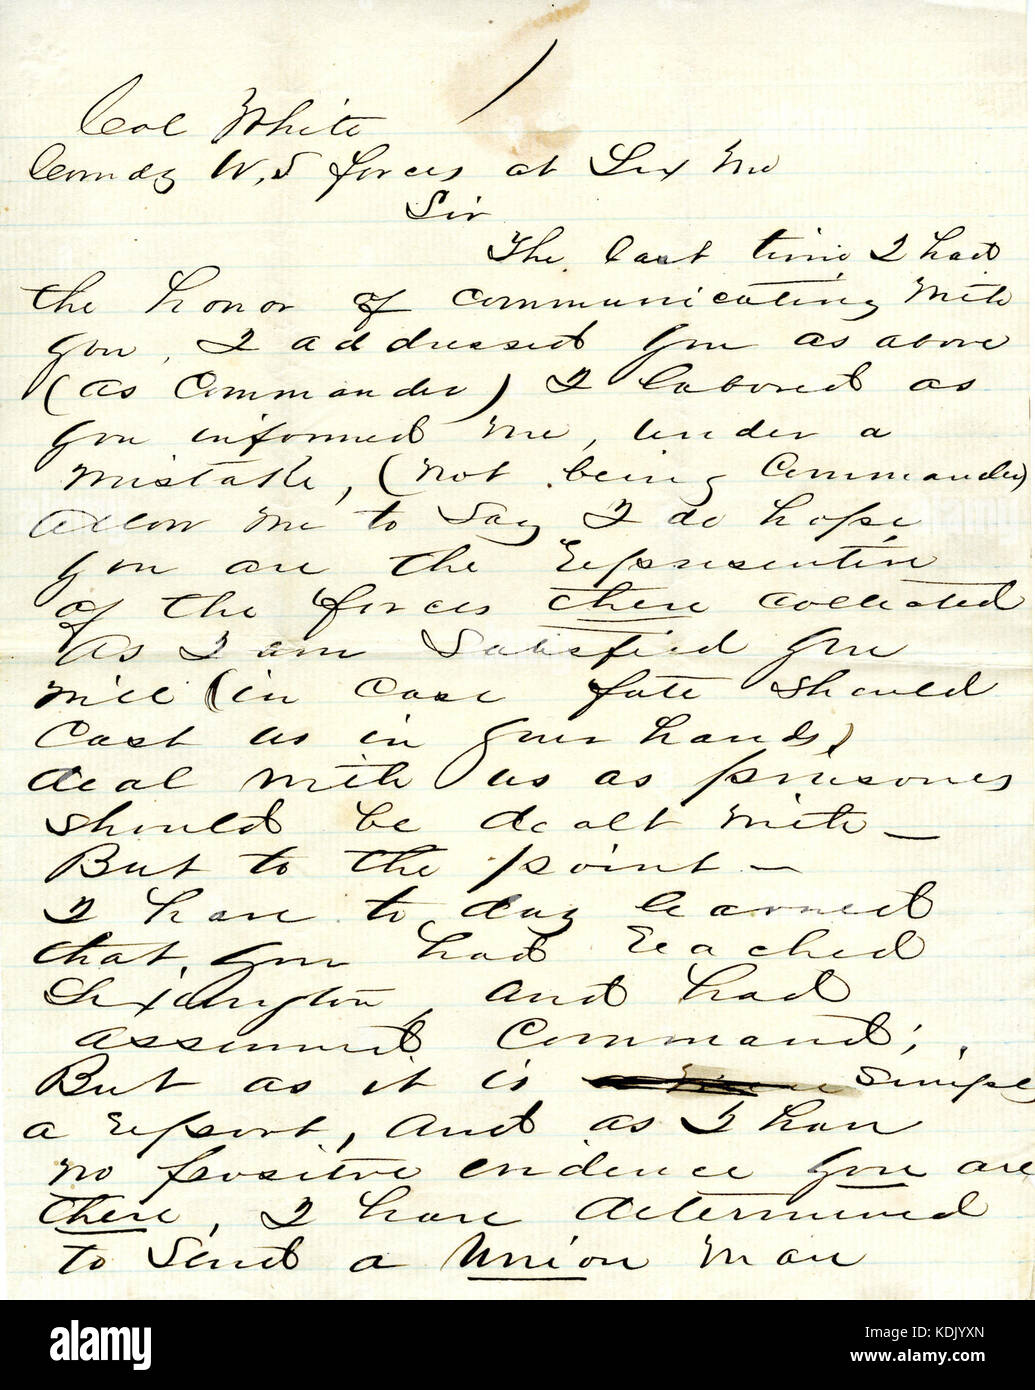 Col White
Comdg U,S forces at Lex Mo
Sir
The last time I had
the honor of communicating with
you, I addressed you as above
(as Commander) I labored as
you informed me, under a
mistake, (not being Commander)
Allow me to say I do hope
you are the Representive
of the forces there collected
As I am Satisfied you
will (in case fate should
cast us in your hands)
deal with us as prisoners
should be dealt with —
But to the point —
I have to day learned
that, you had Reached
Lexington, and had
assumed Command;
But as it is simply
a Report, and as I have
no positive evidence you are
there, I have determined
to send a Union man
alamy
Image ID: KDJYXN
www.alamy.com